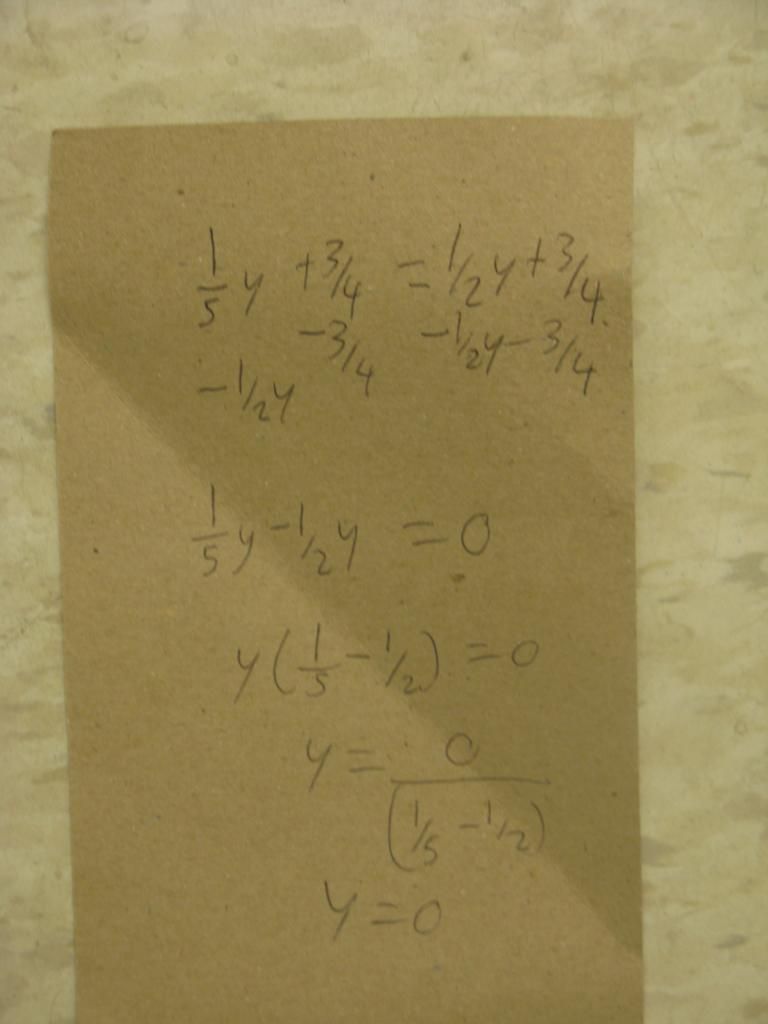 1/5 y + 3/4 = 1/2 y + 3/4
- 3/4 - 1/2 y - 3/4
- 1/2 y
1/5 y - 1/2 y = 0
y ( 1/5 - 1/2 ) = 0
y = 0 / ( 1/5 - 1/2 )
y = 0